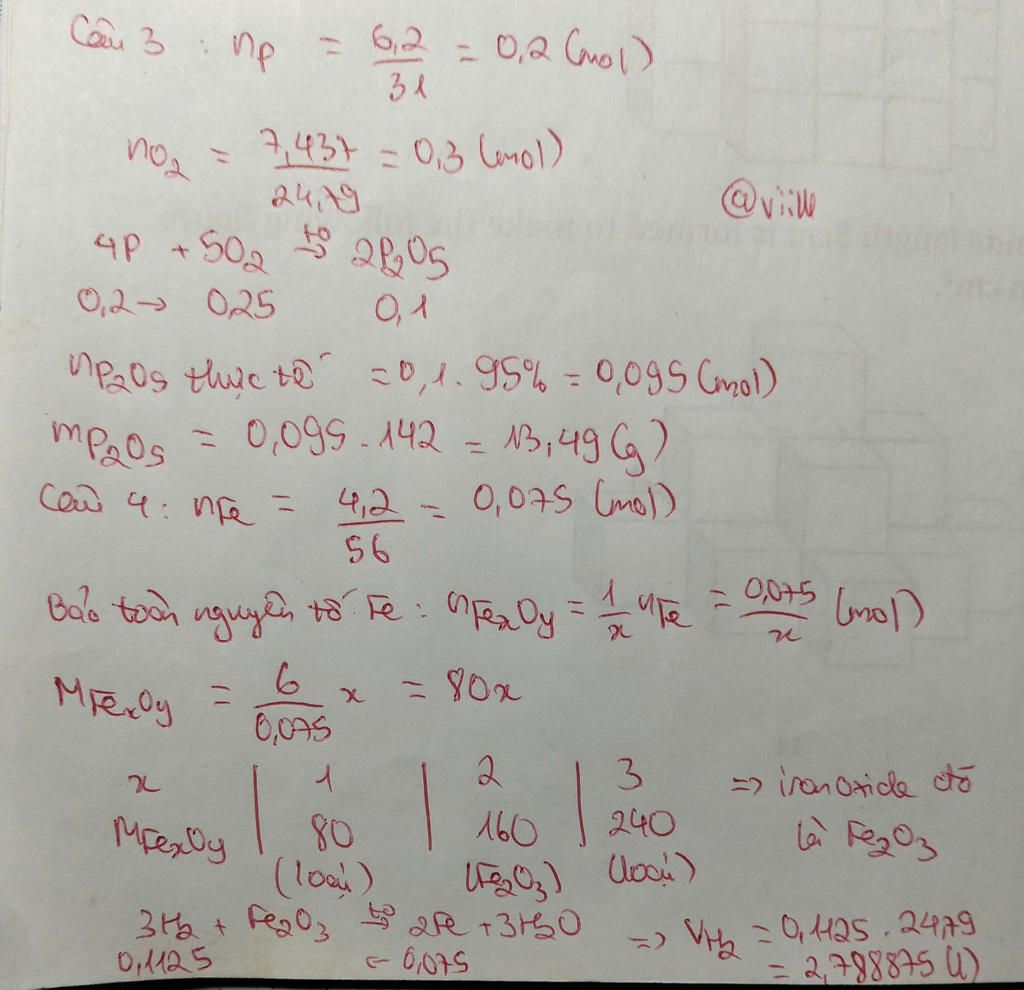 Câu 3 : nP = 6,2/31 = 0,2 (mol)
nO2 = 7,437/24,79 = 0,3 (mol)
@viille
4P + 5O2 t° → 2P2O5
0,2 → 0,25 0,1
nP2O5 thực tế = 0,1 . 95% = 0,095 (mol)
mP2O5 = 0,095 . 142 = 13,49 (g)
Câu 4 : nFe = 4,2/56 = 0,075 (mol)
Bảo toàn nguyên tố Fe : nFexOy = 1/x nFe = 0,075/x (mol)
MFexOy = 6/0,075 x = 80x
x | 1 | 2 | 3 => iron oxide đó
MFexOy | 80 | 160 | 240 là Fe2O3
(loại) (Fe2O3) (loại)
3H2 + Fe2O3 t° → 2Fe + 3H2O => VH2 = 0,1125 . 24,79
0,1125 ← 0,075 = 2,788875 (l)